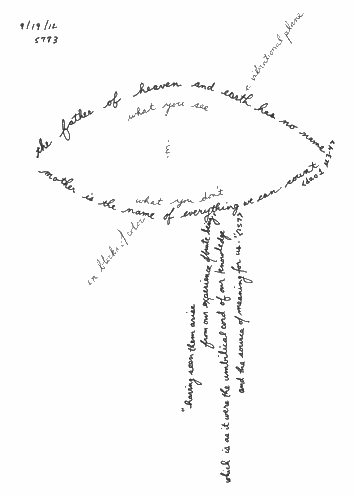 9/19/12
5773
a vibrational plane
the father of heaven and earth has no name
what you see
&
what you don't
mother is the name of everything we can count
in blocks of color
"having seen them arise
from our experience of
which is as it were the umbilical cord of our knowledge
and the source of meaning for us." (157)